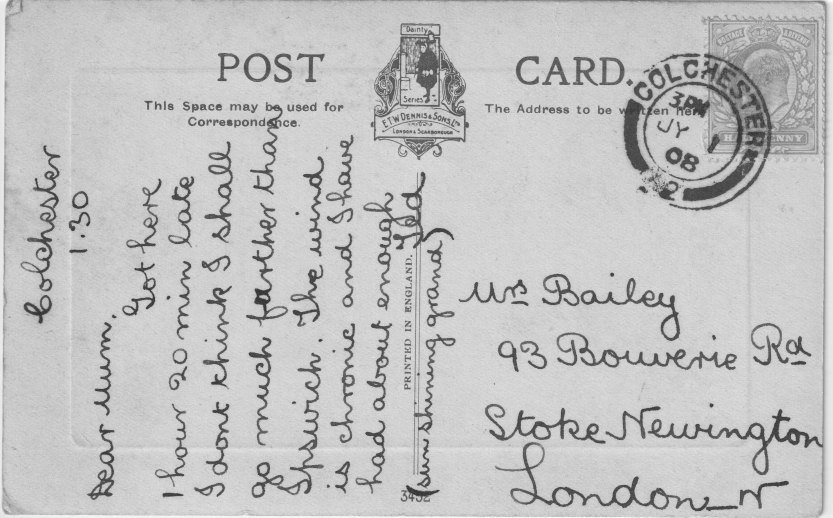 POST CARD.
Dainty
Series
E.T.W. DENNIS & SONS, LTD
LONDON & SCARBOROUGH
This Space may be used for
Correspondence.
The Address to be written here
COLCHESTER
3.PM
JY 1
08
2
POSTAGE
Colchester
1.30
Dear Mum.
Got here
1 hour 20 min late
I dont think I shall
go much farther than
Ipswich. The wind
is chronic and I have
had about enough
(sun shining grand)
PRINTED IN ENGLAND.
3452
Mrs Bailey
93 Bouverie Rd
Stoke Newington
London_N